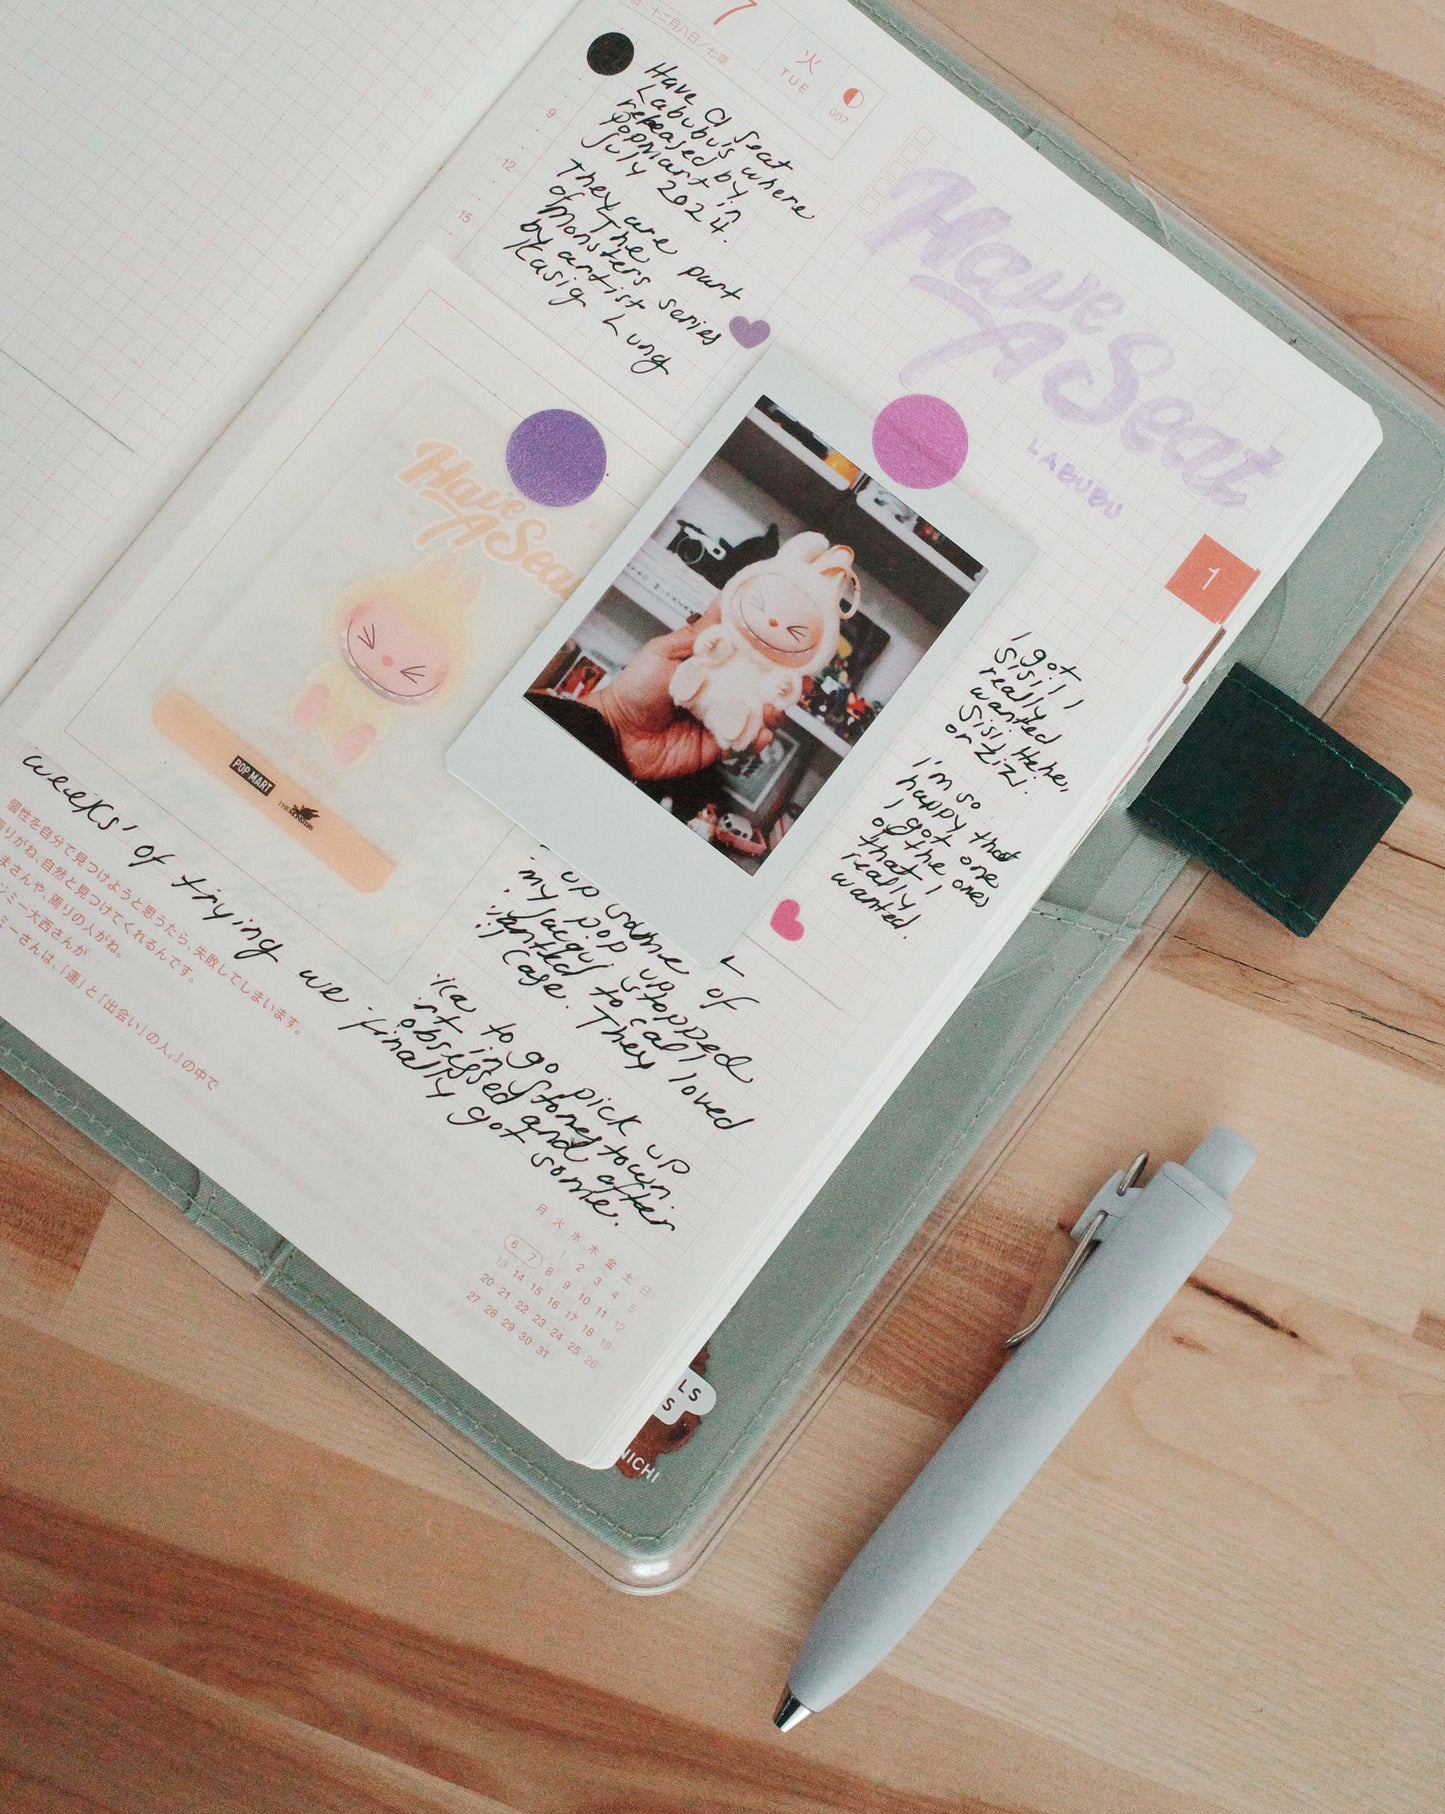 7
十二月八日/七草
火
TUE
007
9
12
15
Have a Seat
Labubu's where
released by
PopMart in
July 2024.
They are part
of The
Monsters series
by artist
Kasig Lung
Have
A Seat
LABUBU
1
Have
A Sea
POP MART
I got
Sisi! I
really
wanted
Sisi, Hehe,
or Zizi.
I'm so
happy that
I got one
of the ones
that I
really
wanted.
up game of
my pop up
Jacqui stopped
wanted to call
case. They loved
to go pick up
rt in Stonestown.
obsessed and after
finally got some.
weeks' of trying we
個性を自分で見つけようと思うたら、失敗してしまいます。
周りがね、自然と見つけてくれるんです。
まさんや、周りの人がね。
ミー大西さんが
ミーさんは、「運」と「出会い」の人。』の中で
月 火 水 木 金 土 日
1 2 3 4 5
6 7 8 9 10 11 12
13 14 15 16 17 18 19
20 21 22 23 24 25 26
27 28 29 30 31
LS
S
NICHI